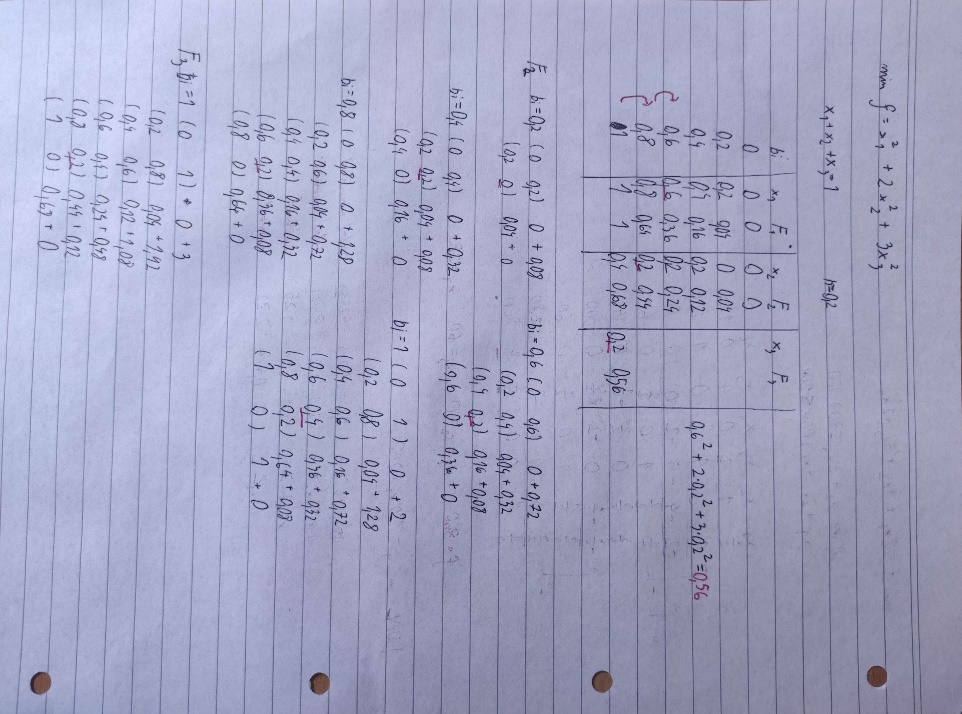 min f = x₁² + 2x₂² + 3x₃²
x₁ + x₂ + x₃ = 1 h=0,2
bi x₁ F₁ x₂ F₂ x₃ F₃
0 0 0 0 0
0,2 0,2 0,04 0 0,04
0,4 0,4 0,16 0,2 0,12
0,6 0,6 0,36 0,2 0,24
0,8 0,8 0,64 0,2 0,44
1 1 1 0,4 0,68 0,2 0,56
0,6² + 2·0,2² + 3·0,2² = 0,56
F₂ bi=0,2 (0 0,2) 0 + 0,08
(0,2 0) 0,04 + 0
bi=0,4 (0 0,4) 0 + 0,32
(0,2 0,2) 0,04 + 0,08
(0,4 0) 0,16 + 0
bi=0,8 (0 0,8) 0 + 1,28
(0,2 0,6) 0,04 + 0,72
(0,4 0,4) 0,16 + 0,32
(0,6 0,2) 0,36 + 0,08
(0,8 0) 0,64 + 0
bi=0,6 (0 0,6) 0 + 0,72
(0,2 0,4) 0,04 + 0,32
(0,4 0,2) 0,16 + 0,08
(0,6 0) 0,36 + 0
bi=1 (0 1) 0 + 2
(0,2 0,8) 0,04 + 1,28
(0,4 0,6) 0,16 + 0,72
(0,6 0,4) 0,36 + 0,32
(0,8 0,2) 0,64 + 0,08
(1 0) 1 + 0
F₃ bi=1 (0 1) 0 + 3
(0,2 0,8) 0,04 + 1,92
(0,4 0,6) 0,12 + 1,08
(0,6 0,4) 0,24 + 0,48
(0,8 0,2) 0,44 + 0,12
(1 0) 0,68 + 0